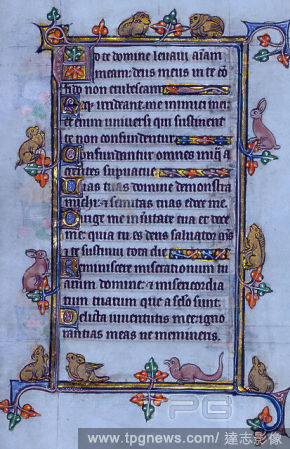 Ad te domine levavi a͞iam
meam: deus meus in te co͞n
fido non erubescam
Neq; irrideant me inimici mei:
et enim universi qui sustinent
te non confundentur
Confundantur omnes iniq͛ a
gentes supvacue
Vias tuas domine demonstra
michi: & semitas tuas edoce me.
Dirige me in veritate tua et doce
me: quia tu es deus salvator m͛s
& te sustinui tota die
Reminiscere miserationum tu
arum domine: & misericordia
rum tuarum que a seculo sunt.
Delicta iuventutis mee & igno
rantias meas ne memineris.
PG
www.tpgnews.com/ 達志影像